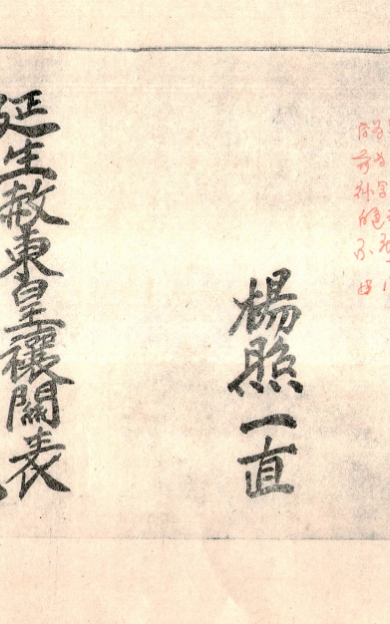 楊照一直
延生赦東皇禳關表